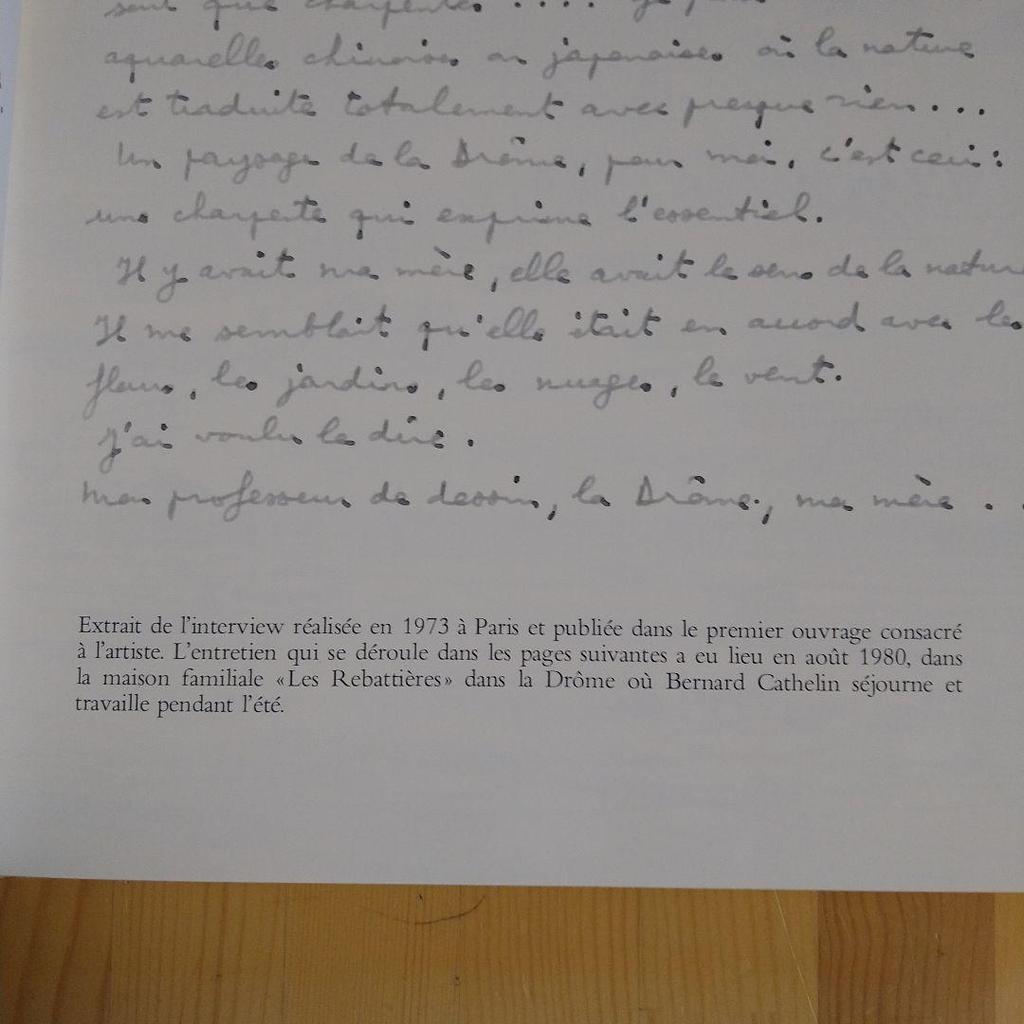 sont que charpentes ....
aquarelles chinoises ou japonaises où la nature
est traduite totalement avec presque rien...
Un paysage de la Drôme, pour moi, c'est ceci:
une charpente qui exprime l'essentiel.
Il y avait ma mère, elle avait le sens de la nature
Il me semblait qu'elle était en accord avec les
fleurs, les jardins, les nuages, le vent.
J'ai voulu le dire.
Mon professeur de dessin, la Drôme, ma mère . .
Extrait de l'interview réalisée en 1973 à Paris et publiée dans le premier ouvrage consacré
à l'artiste. L'entretien qui se déroule dans les pages suivantes a eu lieu en août 1980, dans
la maison familiale «Les Rebattières» dans la Drôme où Bernard Cathelin séjourne et
travaille pendant l'été.